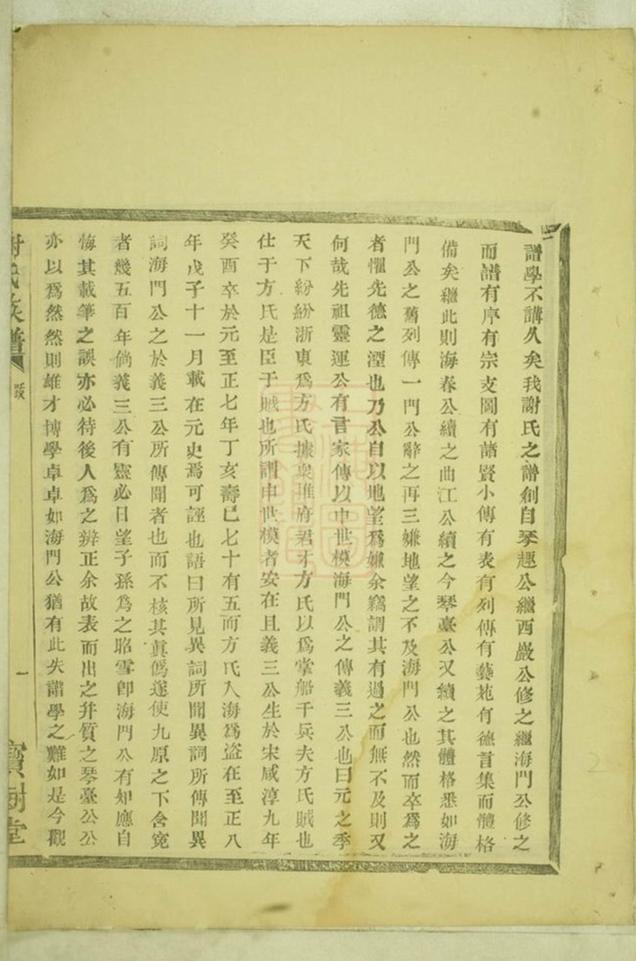 譜學不講久矣我謝氏之譜創自琴趣公繼西巖公修之繼海門公修之
而譜有序有宗支圖有諸賢小傳有表有列傳有藝苑有德言集而體格
備矣繼此則海春公續之曲江公續之今琴臺公又續之其體格悉如海
門公之舊列傳一門公辭之再三嫌地望之不及海門公也然而卒爲之
者懼先德之湮也乃公自以地望爲嫌余竊謂其有過之而無不及則又
何哉先祖靈運公有言家傳以申世模海門公之傳義三公也曰元之季
天下紛紛浙東爲方氏據奥推府君才方氏以爲掌船千兵夫方氏賊也
仕于方氏是臣于賊也所謂申世模者安在且義三公生於宋咸淳九年
癸酉卒於元至正七年丁亥壽已七十有五而方氏入海爲盜在至正八
年戊子十一月載在元史焉可誣也語曰所見異詞所聞異詞所傳聞異
詞海門公之於義三公所傳聞者也而不核其眞僞遂使九原之下含寃
者幾五百年倘義三公有靈必日望子孫爲之昭雪卽海門公有知應自
悔其載筆之誤亦必待後人爲之辨正余故表而出之幷質之琴臺公公
亦以爲然然則雄才博學卓卓如海門公猶有此失譜學之難如是今觀
謝氏族譜 跋 一 寶樹堂